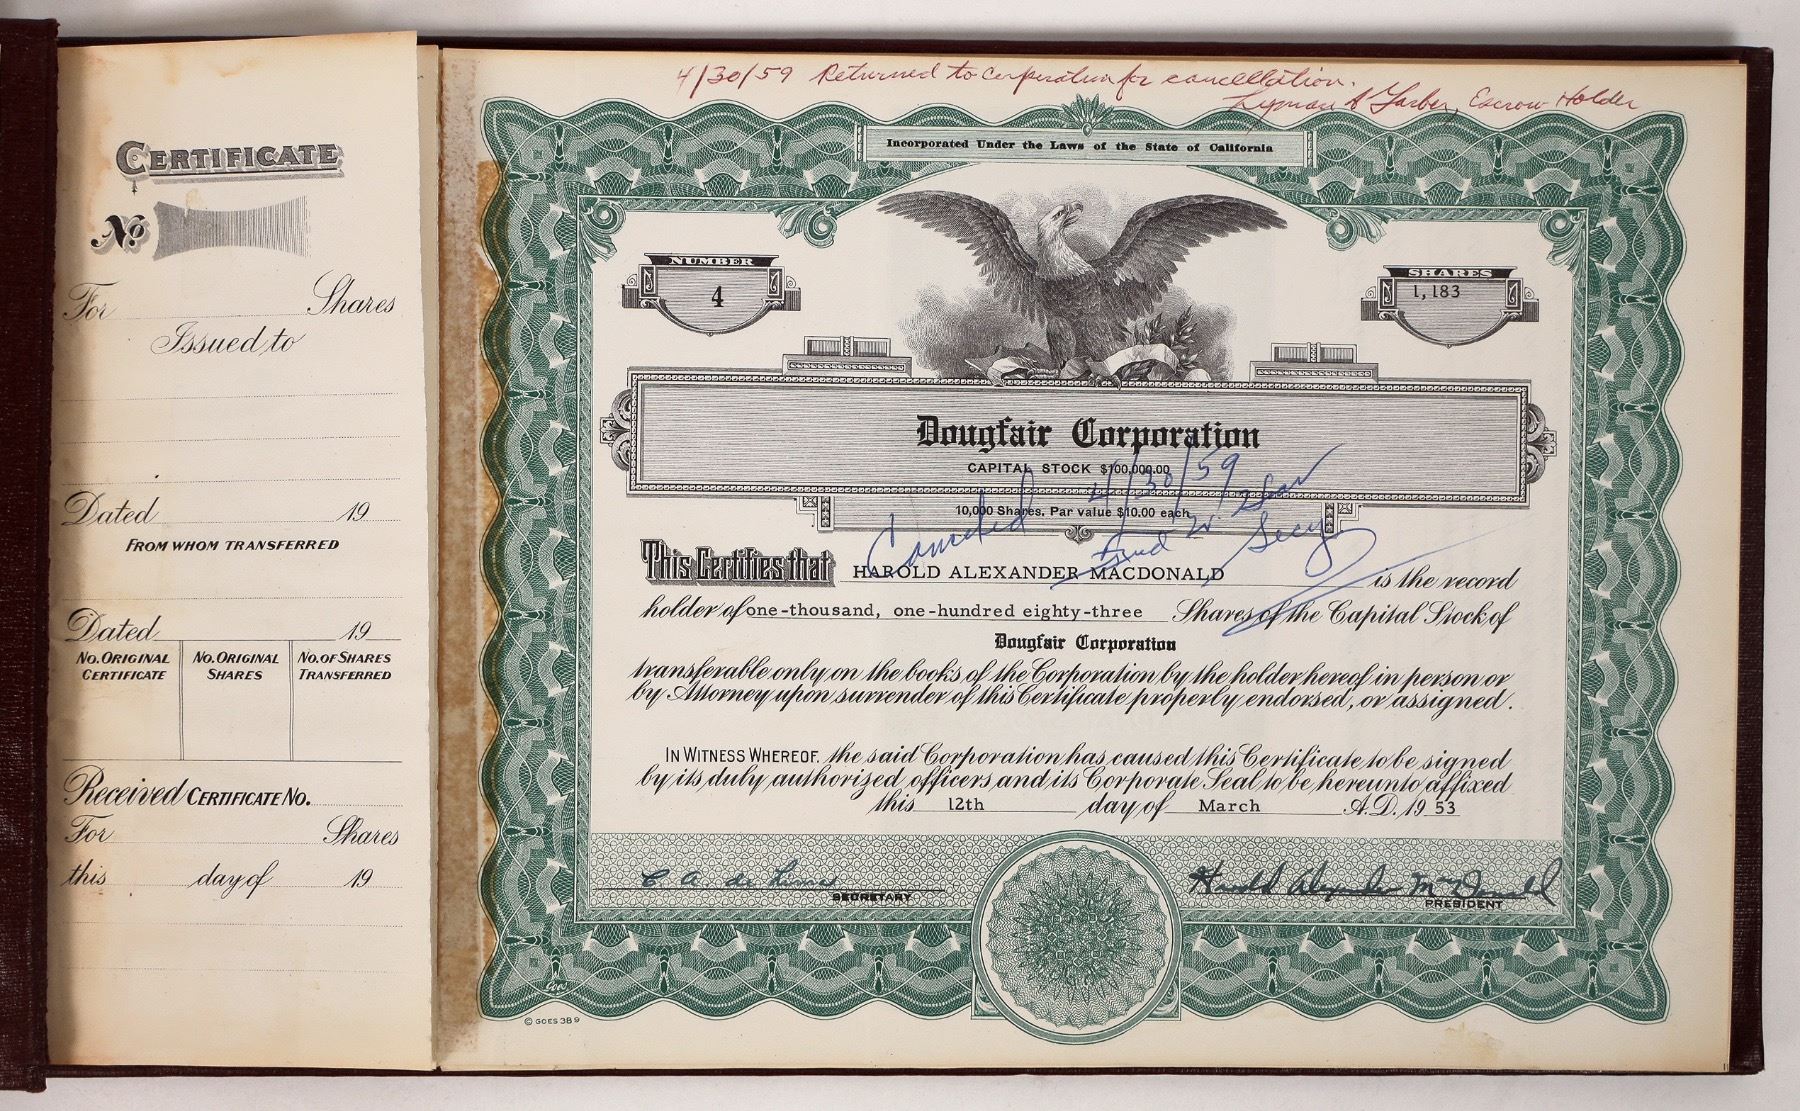 CERTIFICATE
No
For Shares
Issued to
Dated 19
FROM WHOM TRANSFERRED
Dated 19
NO. ORIGINAL CERTIFICATE
NO. ORIGINAL SHARES
NO. OF SHARES TRANSFERRED
Received CERTIFICATE NO.
For Shares
this day of 19
4/30/59 Returned to Corporation for cancellation.
Lyman A Garber, Escrow Holder
Incorporated Under the Laws of the State of California
NUMBER
4
SHARES
1,183
Dougfair Corporation
CAPITAL STOCK $100,000.00
10,000 Shares. Par value $10.00 each
Canceled 4/30/59
Secy
This Certifies that HAROLD ALEXANDER MACDONALD is the record
holder of one-thousand, one-hundred eighty-three Shares of the Capital Stock of
Dougfair Corporation
transferable only on the books of the Corporation by the holder hereof in person or
by Attorney upon surrender of this Certificate properly endorsed, or assigned.
IN WITNESS WHEREOF, the said Corporation has caused this Certificate to be signed
by its duly authorized officers and its Corporate Seal to be hereunto affixed
this 12th day of March A.D. 19 53
C. A. de Lima
SECRETARY
Harold Alexander McDonald
PRESIDENT
Goes
© GOES 389